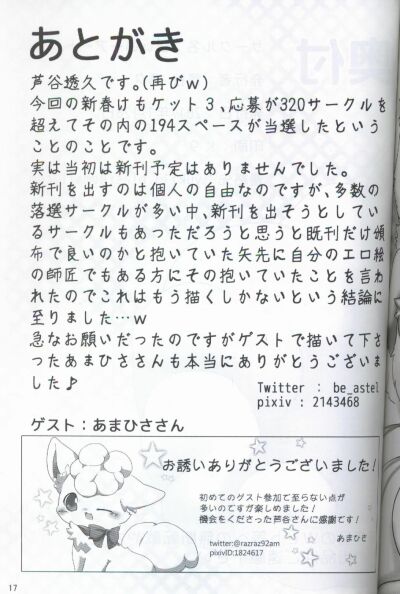 あとがき
芦谷透久です。(再びｗ)
今回の新春けもケット３、応募が320サークルを
超えてその内の194スペースが当選したという
ことのことです。
実は当初は新刊予定はありませんでした。
新刊を出すのは個人の自由なのですが、多数の
落選サークルが多い中、新刊を出そうとしてい
るサークルもあっただろうと思うと既刊だけ頒
布で良いのかと抱いていた矢先に自分のエロ絵
の師匠でもある方にその抱いていたことを言わ
れたのでこれはもう描くしかないという結論に
至りました…ｗ
急なお願いだったのですがゲストで描いて下さ
ったあまひささんも本当にありがとうございま
した♪
Twitter : be_astel
pixiv : 2143468
ゲスト：あまひささん
お誘いありがとうございました!
初めてのゲスト参加で至らない点が
多いのですが楽しめました!
機会をくださった芦谷さんに感謝です!
あまひさ
twitter:@razraz92am
pixivID:1824617
17